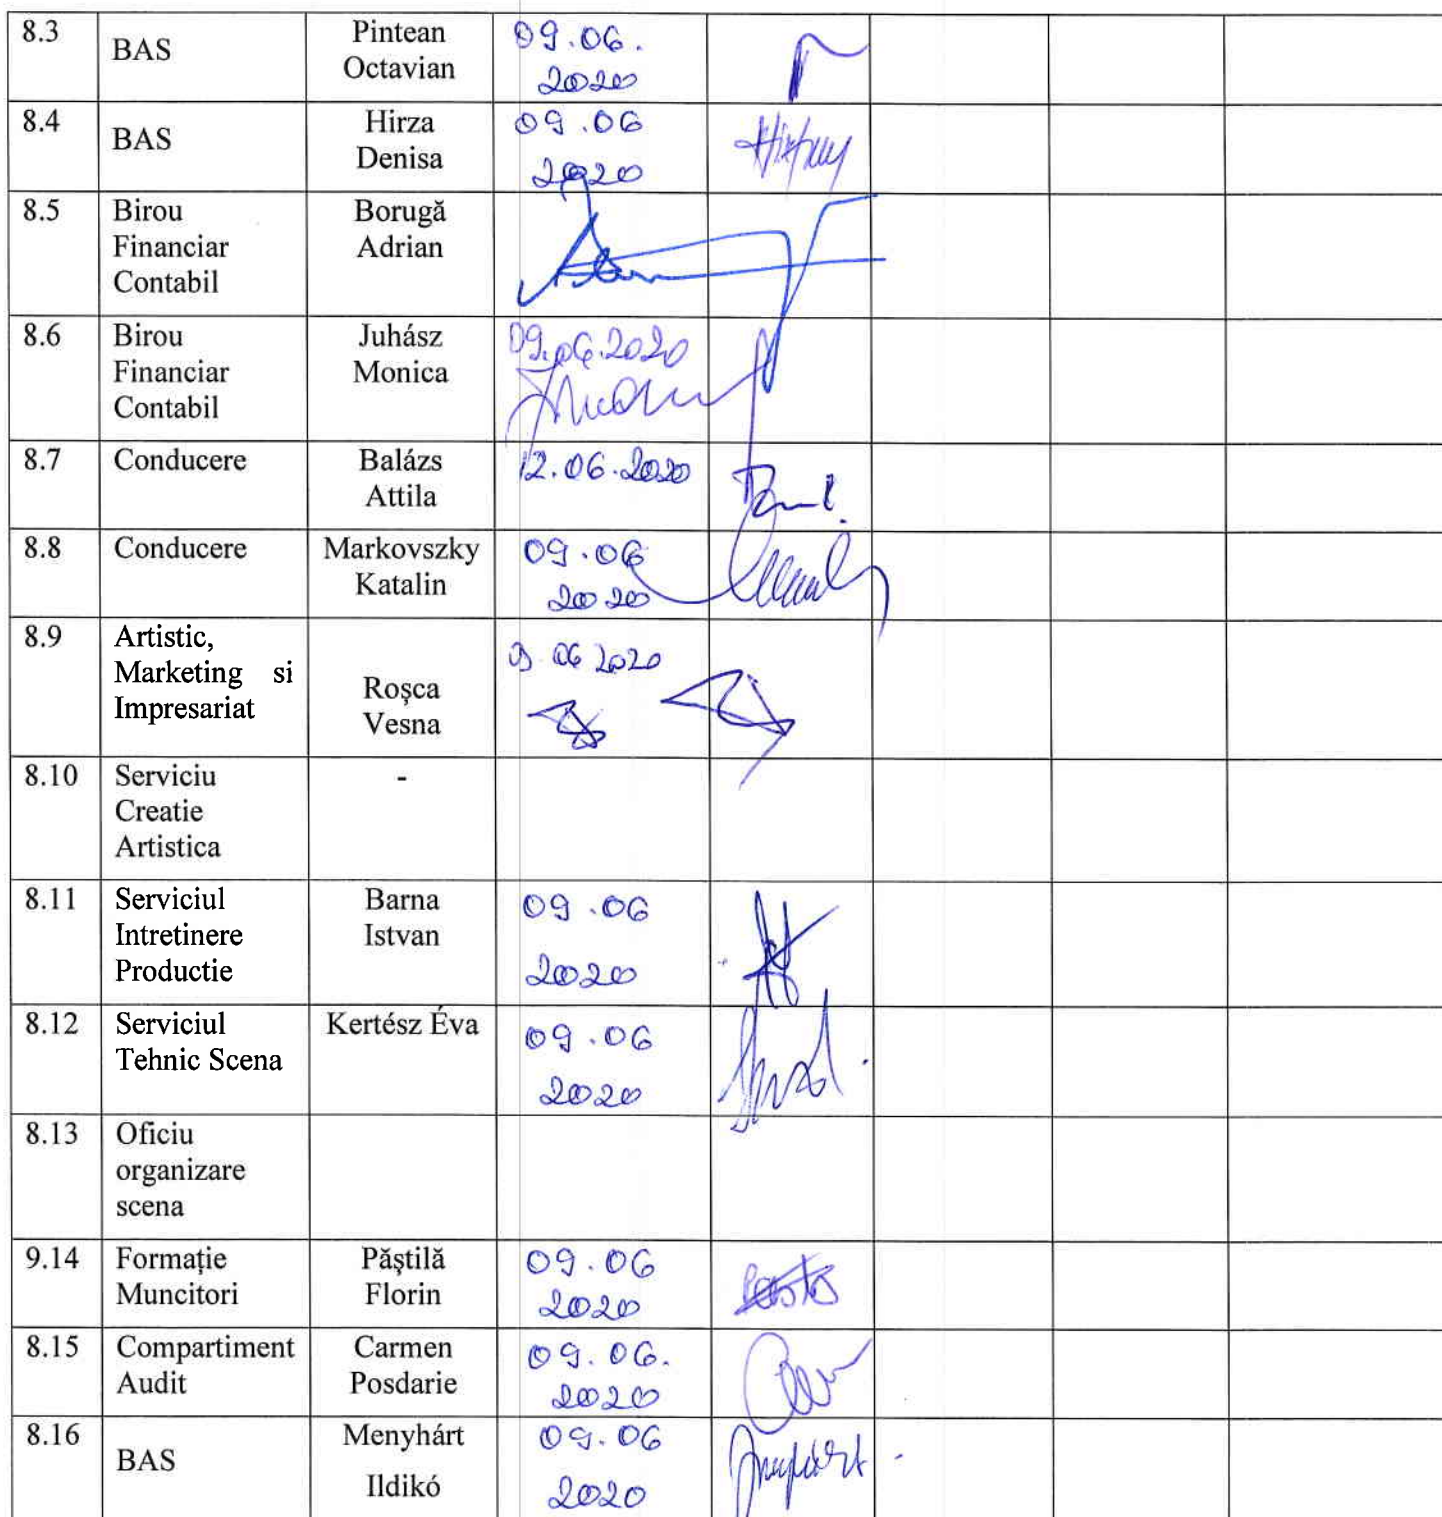 8.3
BAS
Pintean
Octavian
09.06.
2020
8.4
BAS
Hirza
Denisa
09.06
2020
8.5
Birou
Financiar
Contabil
Borugă
Adrian
8.6
Birou
Financiar
Contabil
Juhász
Monica
09.06.2020
8.7
Conducere
Balázs
Attila
12.06.2020
8.8
Conducere
Markovszky
Katalin
09.06
2020
8.9
Artistic,
Marketing si
Impresariat
Roșca
Vesna
9.06 2020
8.10
Serviciu
Creatie
Artistica
-
8.11
Serviciul
Intretinere
Productie
Barna
Istvan
09.06
2020
8.12
Serviciul
Tehnic Scena
Kertész Éva
09.06
2020
8.13
Oficiu
organizare
scena
9.14
Formație
Muncitori
Păștilă
Florin
09.06
2020
8.15
Compartiment
Audit
Carmen
Posdarie
09.06.
2020
8.16
BAS
Menyhárt
Ildikó
09.06
2020